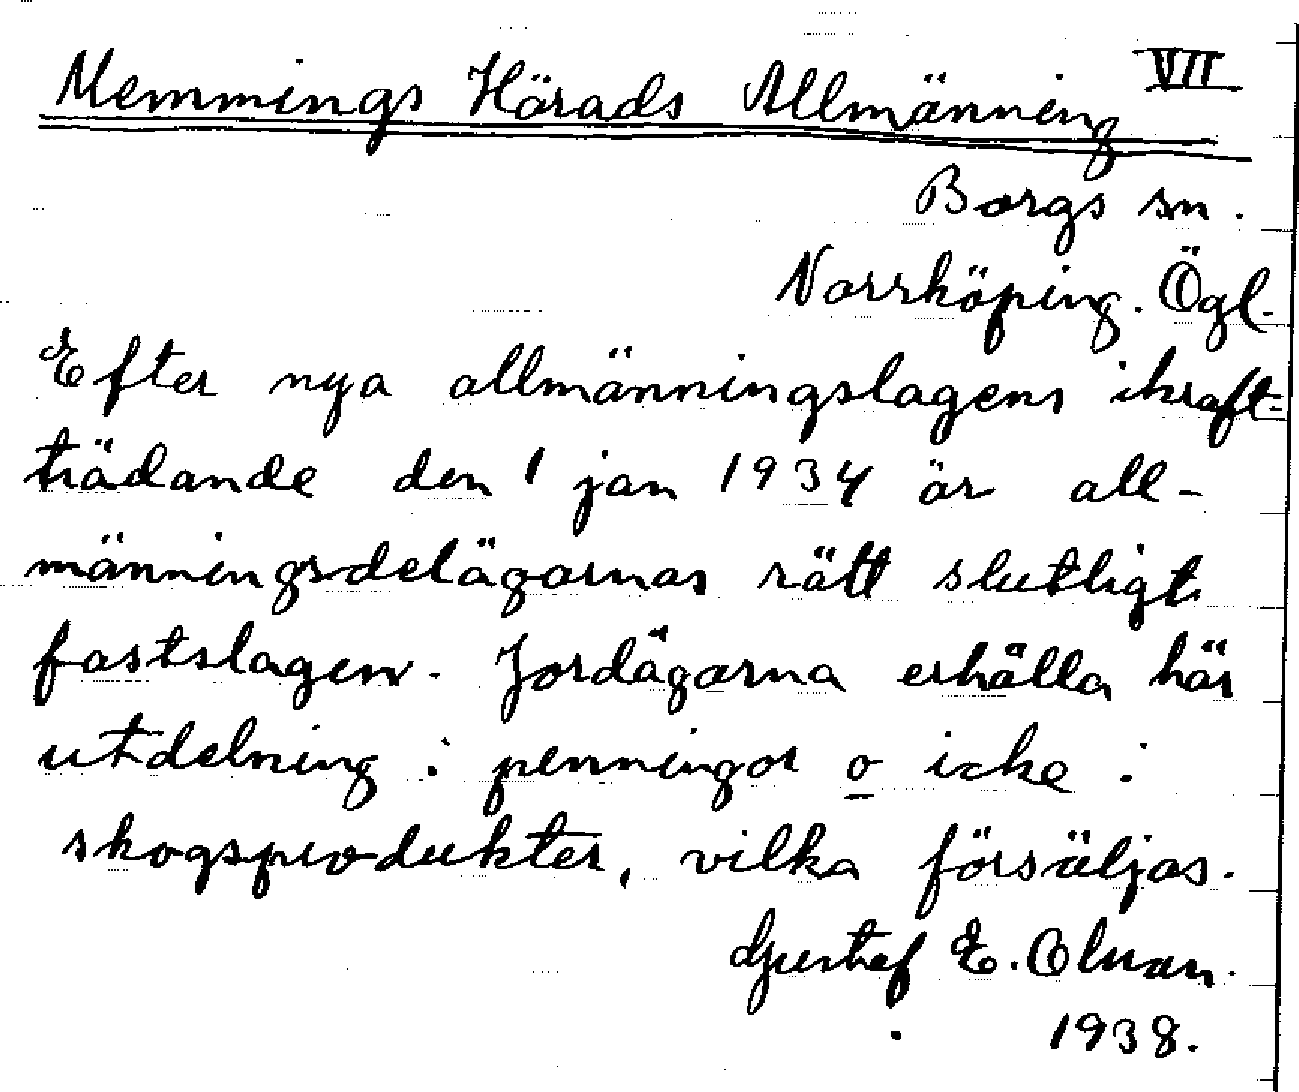 VII
Memmings Härads Allmänning
Borgs sn.
Norrköping. Ögl.
Efter nya allmänningslagens ikraft-
trädande den 1 jan 1934 är all-
männingsdelägarnas rätt slutligt
fastslagen. Jordägarna erhålla här
utdelning i penningar o icke i
skogsprodukter, vilka försäljas.
Gustaf E.
1938.